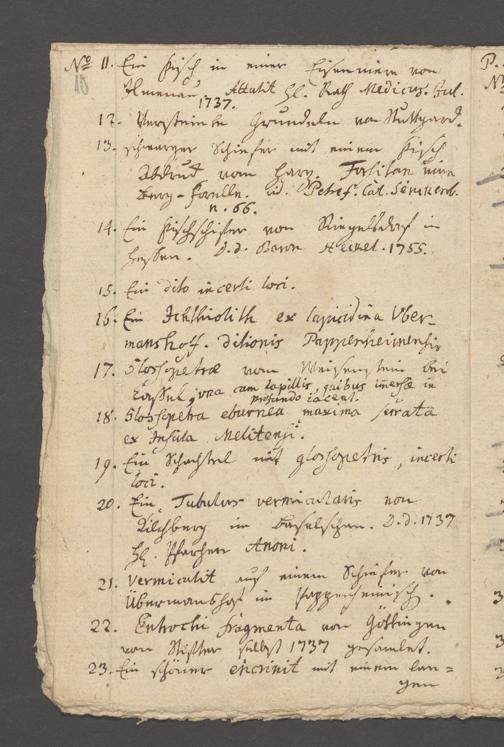 Nº 11. Ein Fisch in einer Eisenniere von
10
Ilmenau. Attulit H. Rath Medicus. Jul.
1737.
12. Versteinte Grundeln von Stuttgard.
13. schwarzer Schiefer mit einem Fisch
Abdruck vom Harz. Forsitan eine
Berg-Forelle. id. Petref. Cat. Senckenb.
n. 66.
14. Ein Fischschiefer von Riegelsdorf in
Hessen. D.d. Baron Heckel. 1755.
15. Ein dito incerti loci.
16. Ein Ichthiolith ex lapicidina Uber-
manshof. ditionis Pappenheimensis
17. Glossopetræ vom Weisenstein bei
Cassel, una cum lapillis, quibus immersæ in
profundo jacent.
18. Glossopetra eburnea maxima serrata
ex Insula Melitensi.
19. Ein Schachtel mit glossopetris, incerti
loci.
20. Ein Tubulus vermicularis von
Kilchberg im Baselischen. D.d. 1737
H. Pfarherr Anoni.
21. Vermiculit auf einem Schiefer von
Übermanshof im Pappenheimisch.
22. Entrochi fragmenta von Göttingen
vom Stifter selbst 1737 gesamlet.
23. Ein schöner encrinit mit einem lan=
gen
P.
Nº